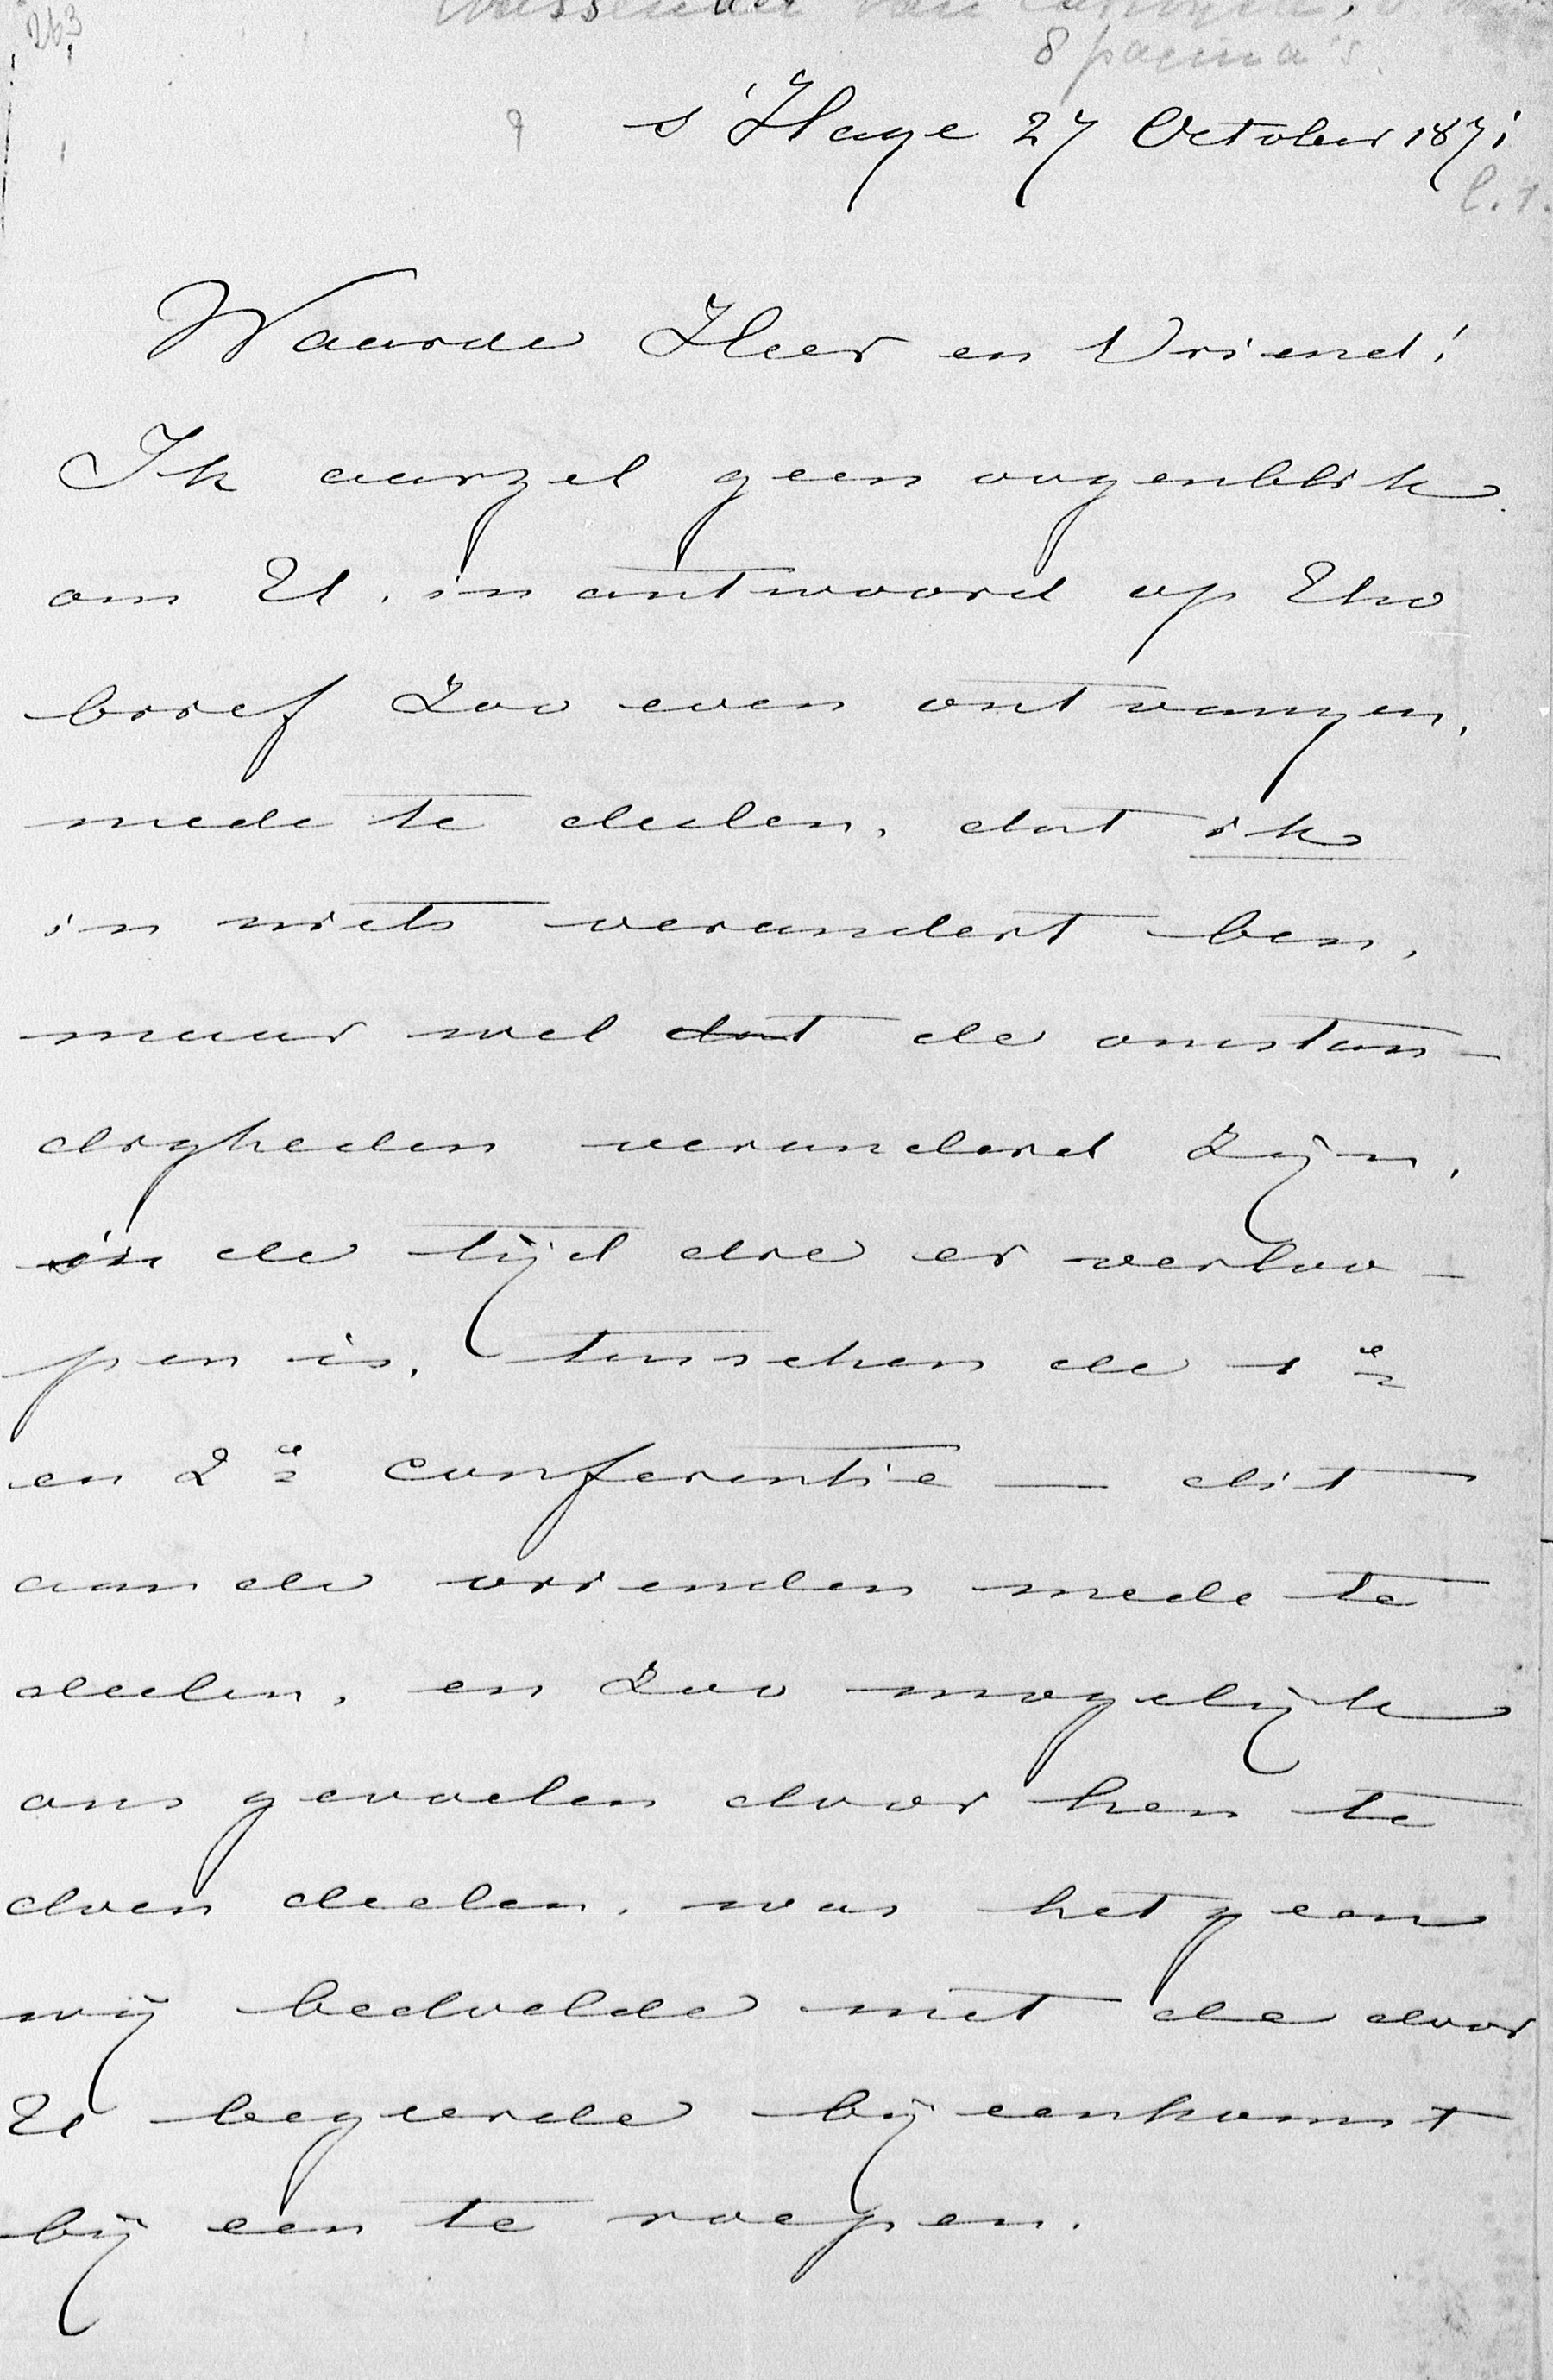 263
Wassenaer van Catwijck,
8 pagina's.
s'Hage 27 October 1871
l. 1.
Waarde Heer en Vriend!
Ik aarzel geen oogenblik
om U. in antwoord op Uw
brief Zoo even ontvangen,
mede te deelen, dat ik
in niets verandert ben,
maar wel dat de omstan-
digheden veranderd Zijn,
in de tijd die er verloo-
pen is, tusschen de 1e
en 2e conferentie — dit
aan de vrienden mede te
deelen, en Zoo mogelijk
ons gevoelen door hen te
doen deelen, was hetgeen
wij bedoelde met de door
U begeerde bijeenkomst
bij een te roepen.